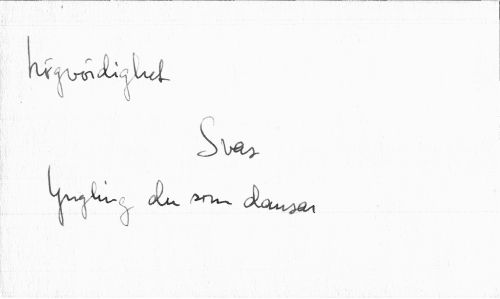 högvördighet
Svar
Yngling du som dansar